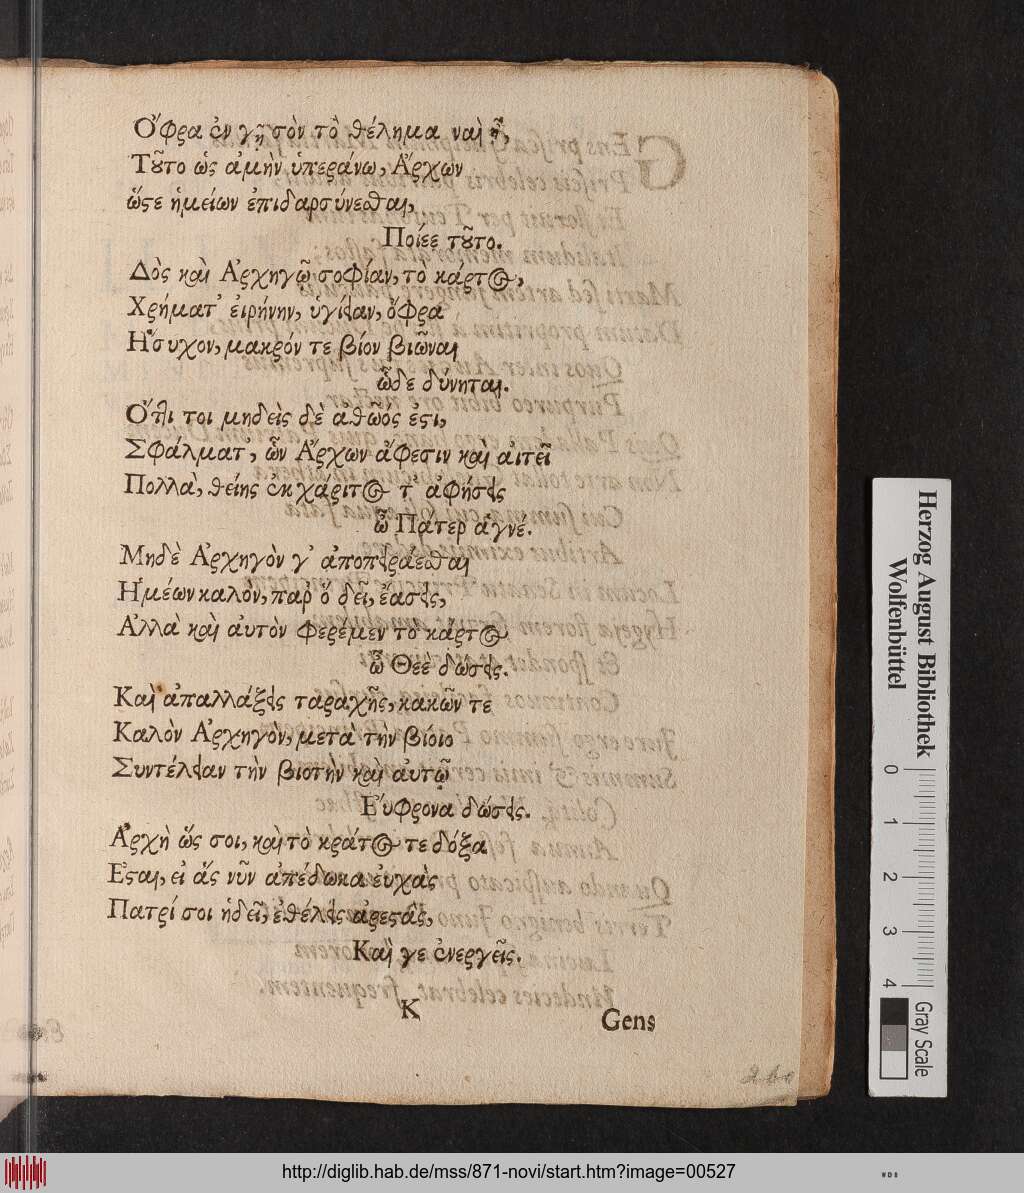 Ὄφρα ἐν γῇ σὸν τὸ θέλημα ναὶ ᾖ,
Τȣ͂το ὡς ἀμὴν ὑπεράνω, Ἄρχων
ὥςε ἡμείων ἐπιδαρσύνεσθαι,
Ποίεε τȣ͂το.
Δὸς καὶ Ἀρχηγῷ σοφίαν, τὸ κάρτος,
Χρήματ' εἰρήνην, ὑγίειαν, ὄφρα
Ἥσυχον, μακρόν τε βίον βιῶναι
ὧδε δύνηται.
Ὅτ͂ι τοι μηδεὶς δὲ ἀθῶός ἐςι,
Σφάλματ', ὧν Ἄρχων ἄφεσιν καὶ αἰτεῖ
Πολλὰ, θείης ἐκ χάριτος τ' ἀφήσεις
ὦ Πάτερ ἁγνέ.
Μηδὲ Ἀρχηγὸν γ' ἀποπειράεσθαι
Ἡμέων καλὸν, παρ' ὃ δεῖ, ἐάσεις,
Ἀλλὰ καὶ αὐτὸν φερέμεν τὸ κάρτος
ὦ Θεὲ δώσεις.
Καὶ ἀπαλλάξεις ταραχῆς, κακῶν τε
Καλὸν Ἀρχηγὸν, μετὰ τὴν βίοιο
Συντέλειαν τὴν βιοτὴν καὶ αὐτῷ
Εὔφρονα δώσεις.
Ἀρχὴ ὥς σοι, καὶ τὸ κράτος τε δόξα
Ἔςαι, εἰ ἃς νῦν ἀπέδωκα εὐχὰς
Πατρί σοι ἡδεῖ, ἐθέλεις ἀρεςὰς,
Καί γε ἐνεργεῖς.
K
Gens
Herzog August Bibliothek
Wolfenbüttel
0 1 2 3 4
Gray Scale
http://diglib.hab.de/mss/871-novi/start.htm?image=00527